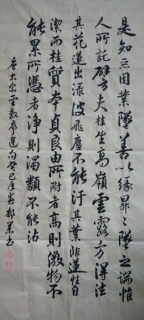 是知惡因業墜善以緣昇々墜之端惟
人所託譬夫桂生高嶺雲露方得泫
其花蓮出淥波飛塵不能汙其葉非蓮性自
潔而桂質本貞良由所附者高則微物不
能累所憑者淨則濁類不能沾
唐太宗聖教序選句癸巳年春